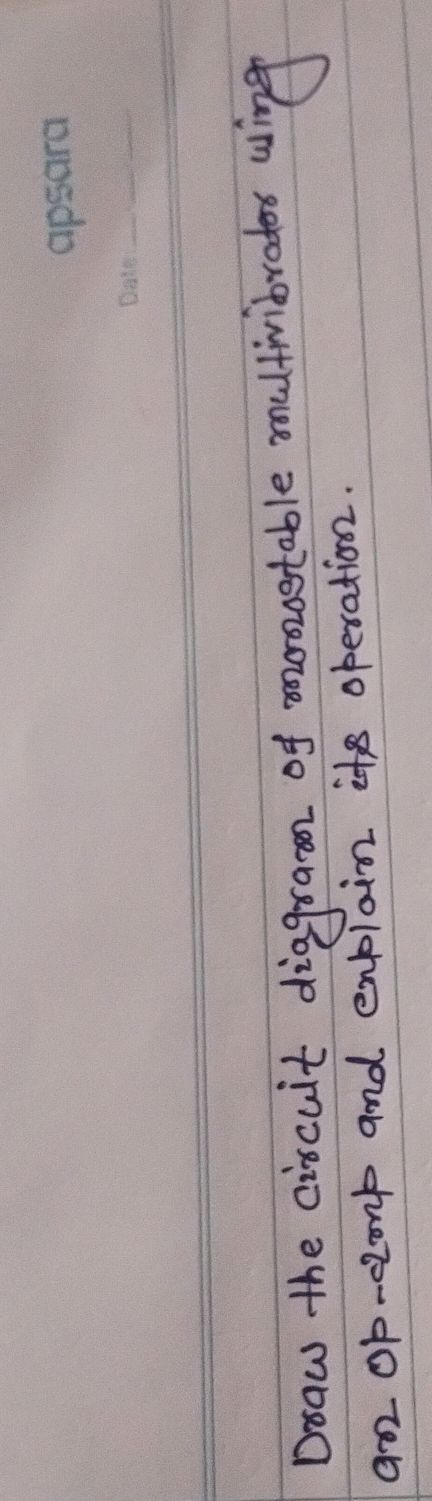 apsara
Date:
Draw the circuit diagram of monostable multivibrator using
an op-amp and explain its operation.